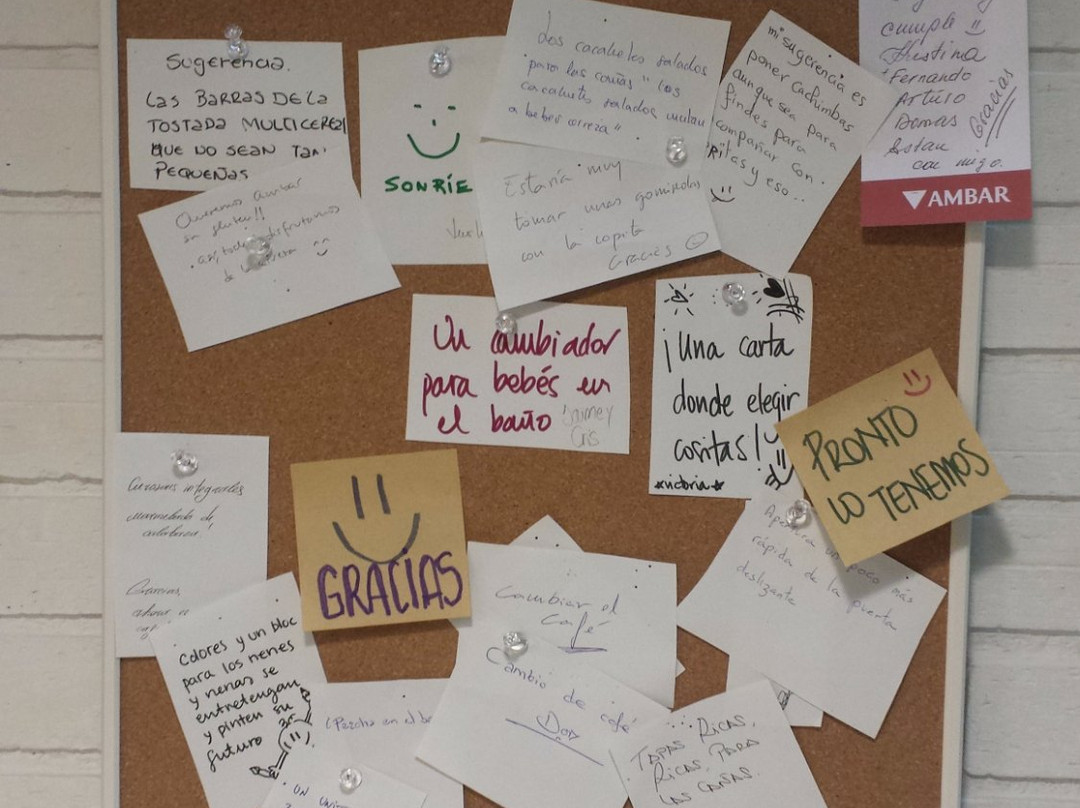 Sugerencia.
LAS BARRAS DE LA
TOSTADA MULTICEREAL
QUE NO SEAN TAN
PEQUEÑAS
SONRÍE
Los cacahuetes salados
para las cañas "los
cacahuetes salados invitan
a beber cerveza".
mi sugerencia es
poner cachimbas
aunque sea para
findes para
compañar con
Ritas y eso..
cumple
Fernando
Arturo
Demas
Estan
con migo.
Gracias
AMBAR
Queremos ambar
sin gluten!!
así, todos disfrutamos
de la
Estaría muy
tomar unas gominolas
con la copita
Gracias
Un cambiador
para bebés en
el baño
Jaime y
Cris
¡Una carta
donde elegir
cositas!
victoria
PRONTO
LO TENEMOS
integrales
mermelada de
GRACIAS
Apertura un poco más
rápida de la puerta
deslizante
Colores y un bloc
para los nenes
y nenas se
entretengan
y pinten su
futuro
Cambiar el
Café
Cambio de café
Dos
(Percha en el
UN
TAPAS RICAS,
RICAS PARA
LAS CAÑAS.